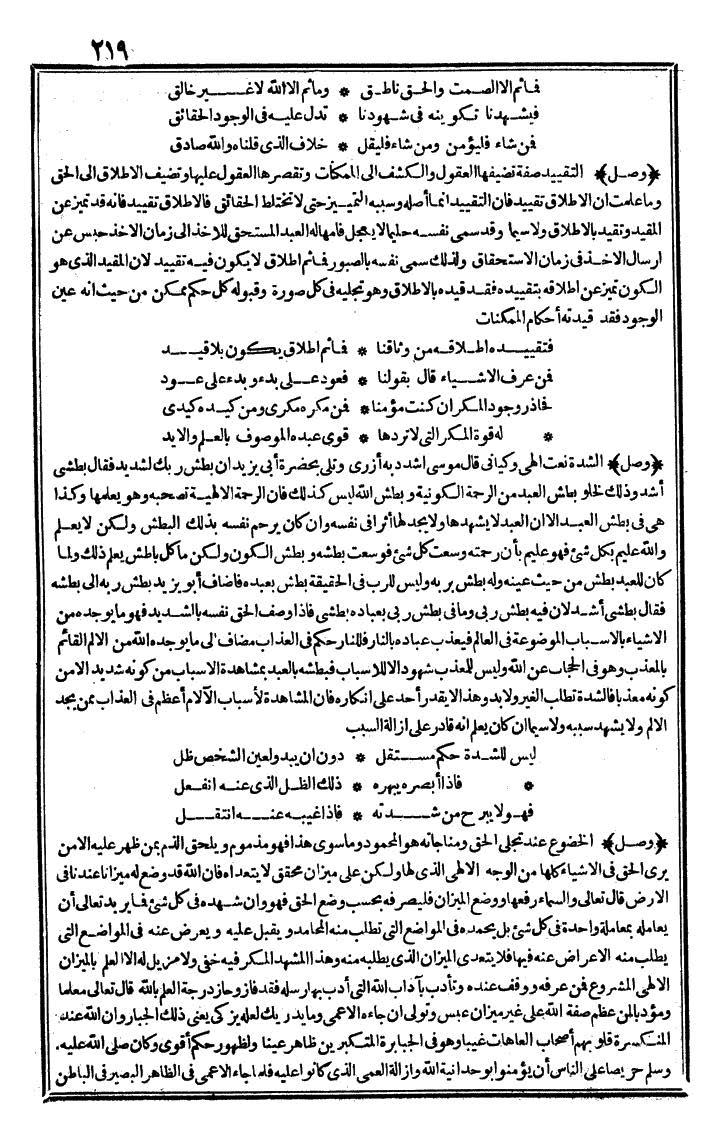 ٢١٩
فما ثم الا الصمت والحق ناطق * وما ثم الا الله لا غير خالق
فيشهدنا تكوينه فى شهودنا * تدل عليه فى الوجود الحقائق
فمن شاء فليؤمن ومن شاء فليقل * خلاف الذى قلناه والله صادق
﴿وصل﴾ التقييد صفة تضيفها العقول والكشف الى الممكنات وتقصرها العقول عليها وتضيف الاطلاق الى الحق
وما علمت ان الاطلاق تقييد فان التقييد انما أصله وسببه التمييز حتى لا تختلط الحقائق فالاطلاق تقييد فانه قد تميز عن
المقيد وتقيد بالاطلاق ولا سيما وقد سمى نفسه حليما لا يعجل فامهاله العبد المستحق للاخذ الى زمان الاخذ حبس عن
ارسال الاخذ فى زمان الاستحقاق ولذلك سمى نفسه بالصبور فما ثم اطلاق لا يكون فيه تقييد لان المقيد الذى هو
الكون تميز عن اطلاقه بتقييده فقد قيده بالاطلاق وهو تجليه فى كل صورة وقبوله كل حكم ممكن من حيث انه عين
الوجود فقد قيدته أحكام الممكنات
فتقييده اطلاقه من وثاقنا * فما ثم اطلاق يكون بلا قيد
فمن عرف الاشياء قال بقولنا * فعود على بدء وبدء على عود
فحاذر وجود المكر ان كنت مؤمنا * فمن مكره مكرى ومن كيده كيدى
* له قوة المكر التى لا تردها * قوى عبده الموصوف بالعلم والايد
﴿وصل﴾ الشدة نعت الهى وكيانى قال موسى اشدد به أزرى وتلى بحضرة أبى يزيد ان بطش ربك لشديد فقال بطشى
أشد وذلك لخلو بطش العبد من الرحمة الكونية وبطش الله ليس كذلك فان الرحمة الالهية تصحبه وهو يعلمها وكذا
هى فى بطش العبد الا ان العبد لا يشهدها ولا يجد لها أثرا فى نفسه وان كان يرحم نفسه بذلك البطش ولكن لا يعلم
والله عليم بكل شئ فهو عليم بأن رحمته وسعت كل شئ فوسعت بطشه وبطش الكون ولكن ما كل باطش يعلم ذلك ولما
كان للعبد بطش من حيث عينه وله بطش بربه وليس للرب فى الحقيقة بطش بعبده فاضاف أبو يزيد بطش ربه الى بطشه
فقال بطشى أشد لان فيه بطش ربى وما فى بطش ربى بعباده بطشى فاذا وصف الحق نفسه بالشديد فهو ما يوجده من
الاشياء بالاسباب الموضوعة فى العالم فيعذب عباده بالنار فللنار حكم فى العذاب مضاف الى ما يوجده الله من الالم القائم
بالمعذب وهو فى الحجاب عن الله وليس للمعذب شهود الا للاسباب فبطشه بالعبد بمشاهدة الاسباب من كونه شديد الا من
كونه معذبا فالشدة تطلب الغير ولا بد وهذا لا يقدر أحد على انكاره فان المشاهدة لأسباب الآلام أعظم فى العذاب بمن يجد
الالم ولا يشهد سببه ولا سيما ان كان يعلم انه قادر على ازالة السبب
ليس للشدة حكم مستقل * دون ان يبدو لعين الشخص ظل
* فاذا أبصره يبهره * ذلك الظل الذى عنه انفعل
فهو لا يبرح من شدته * فاذا غيبه عنه انتقل
﴿وصل﴾ الخضوع عند تجلى الحق ومناجاته هو المحمود وما سوى هذا فهو مذموم ويلحق الذم بمن ظهر عليه الا من
يرى الحق فى الاشياء كلها من الوجه الالهى الذى لها ولكن على ميزان محقق لا يتعداه فان الله قد وضع له ميزانا عندنا فى
الارض قال تعالى والسماء رفعها ووضع الميزان فليصرفه بحسب وضع الحق فهو وان شهده فى كل شئ فما يريد تعالى أن
يعامله بمعاملة واحدة فى كل شئ بل يحمده فى المواضع التى تطلب منه المحامد ويقبل عليه ويعرض عنه فى المواضع التى
يطلب منه الاعراض عنه فيها فلا يتعدى الميزان الذى يطلبه منه وهذا المشهد المكر فيه خفى ولا مزيل له الا العلم بالميزان
الالهى المشروع فمن عرفه ووقف عنده وتأدب بآداب الله التى أدب بها رسله فقد فاز وحاز درجة العلم بالله قال تعالى معلما
ومؤدبا لمن عظم صفة الله على غير ميزان عبس وتولى ان جاءه الاعمى وما يدريك لعله يزكى يعنى ذلك الجبار وان الله عند
المنكسرة قلوبهم أصحاب العاهات غيبا وهو فى الجبابرة المتكبرين ظاهر عينا ولظهور حكم أقوى وكان صلى الله عليه.
وسلم حريصا على الناس أن يؤمنوا بوحدانية الله وازالة العمى الذى كانوا عليه فلما جاء الاعمى فى الظاهر البصير فى الباطن